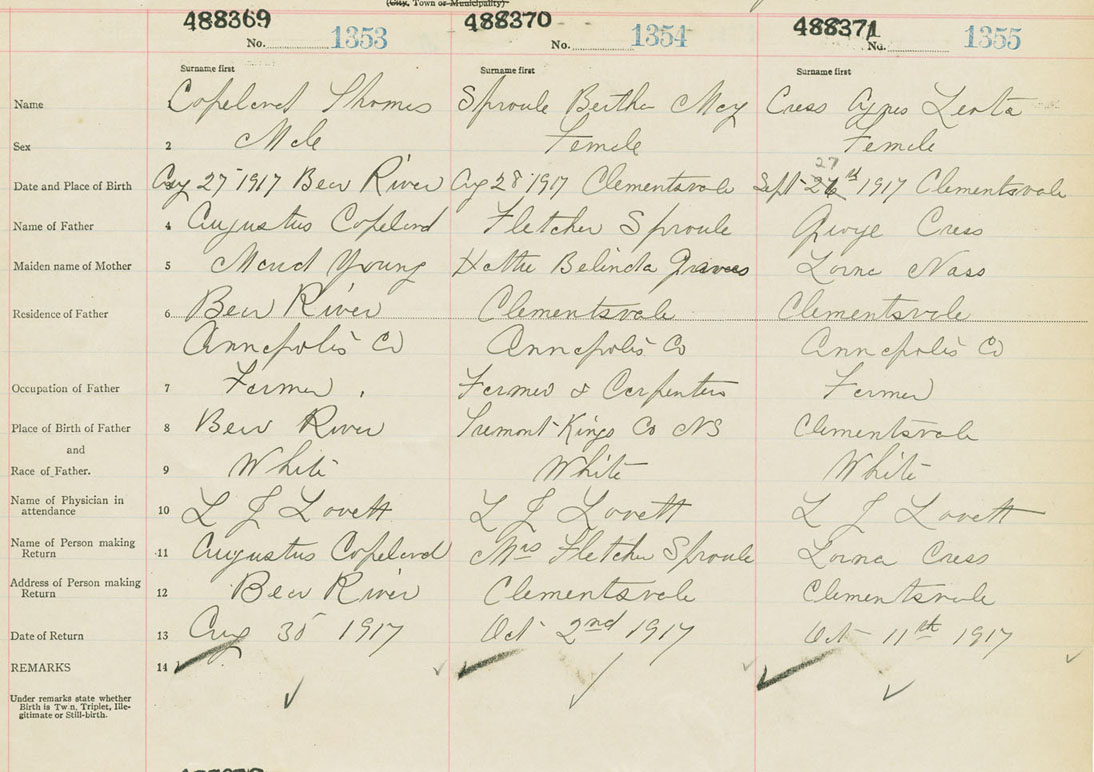 (City, Town or Municipality)
488369 488370 488371
No. 1353 No. 1354 No. 1355
Surname first Surname first Surname first
Name 1 Copeland Thomas Sproule Bertha May Cress Agnes Leota
Sex 2 Male Female Female
27
Date and Place of Birth 3 Aug 27 1917 Bear River Aug 28 1917 Clementsvale Sept 26th 1917 Clementsvale
Name of Father 4 Augustus Copeland Fletcher Sproule George Cress
Maiden name of Mother 5 Maud Young Hattie Belinda Graves Lorna Nass
Residence of Father 6 Bear River Clementsvale Clementsvale
Annapolis Co Annapolis Co Annapolis Co
Occupation of Father 7 Farmer Farmer & Carpenter Farmer
Place of Birth of Father 8 Bear River Tremont Kings Co NS Clementsvale
and
Race of Father. 9 White White White
Name of Physician in
attendance 10 L J Lovett L J Lovett L J Lovett
Name of Person making
Return 11 Augustus Copeland Mrs Fletcher Sproule Lorna Cress
Address of Person making
Return 12 Bear River Clementsvale Clementsvale
Date of Return 13 Aug 30 1917 Oct 2nd 1917 Oct 11th 1917
REMARKS 14
Under remarks state whether
Birth is Twin, Triplet, Ille-
gitimate or Still-birth.